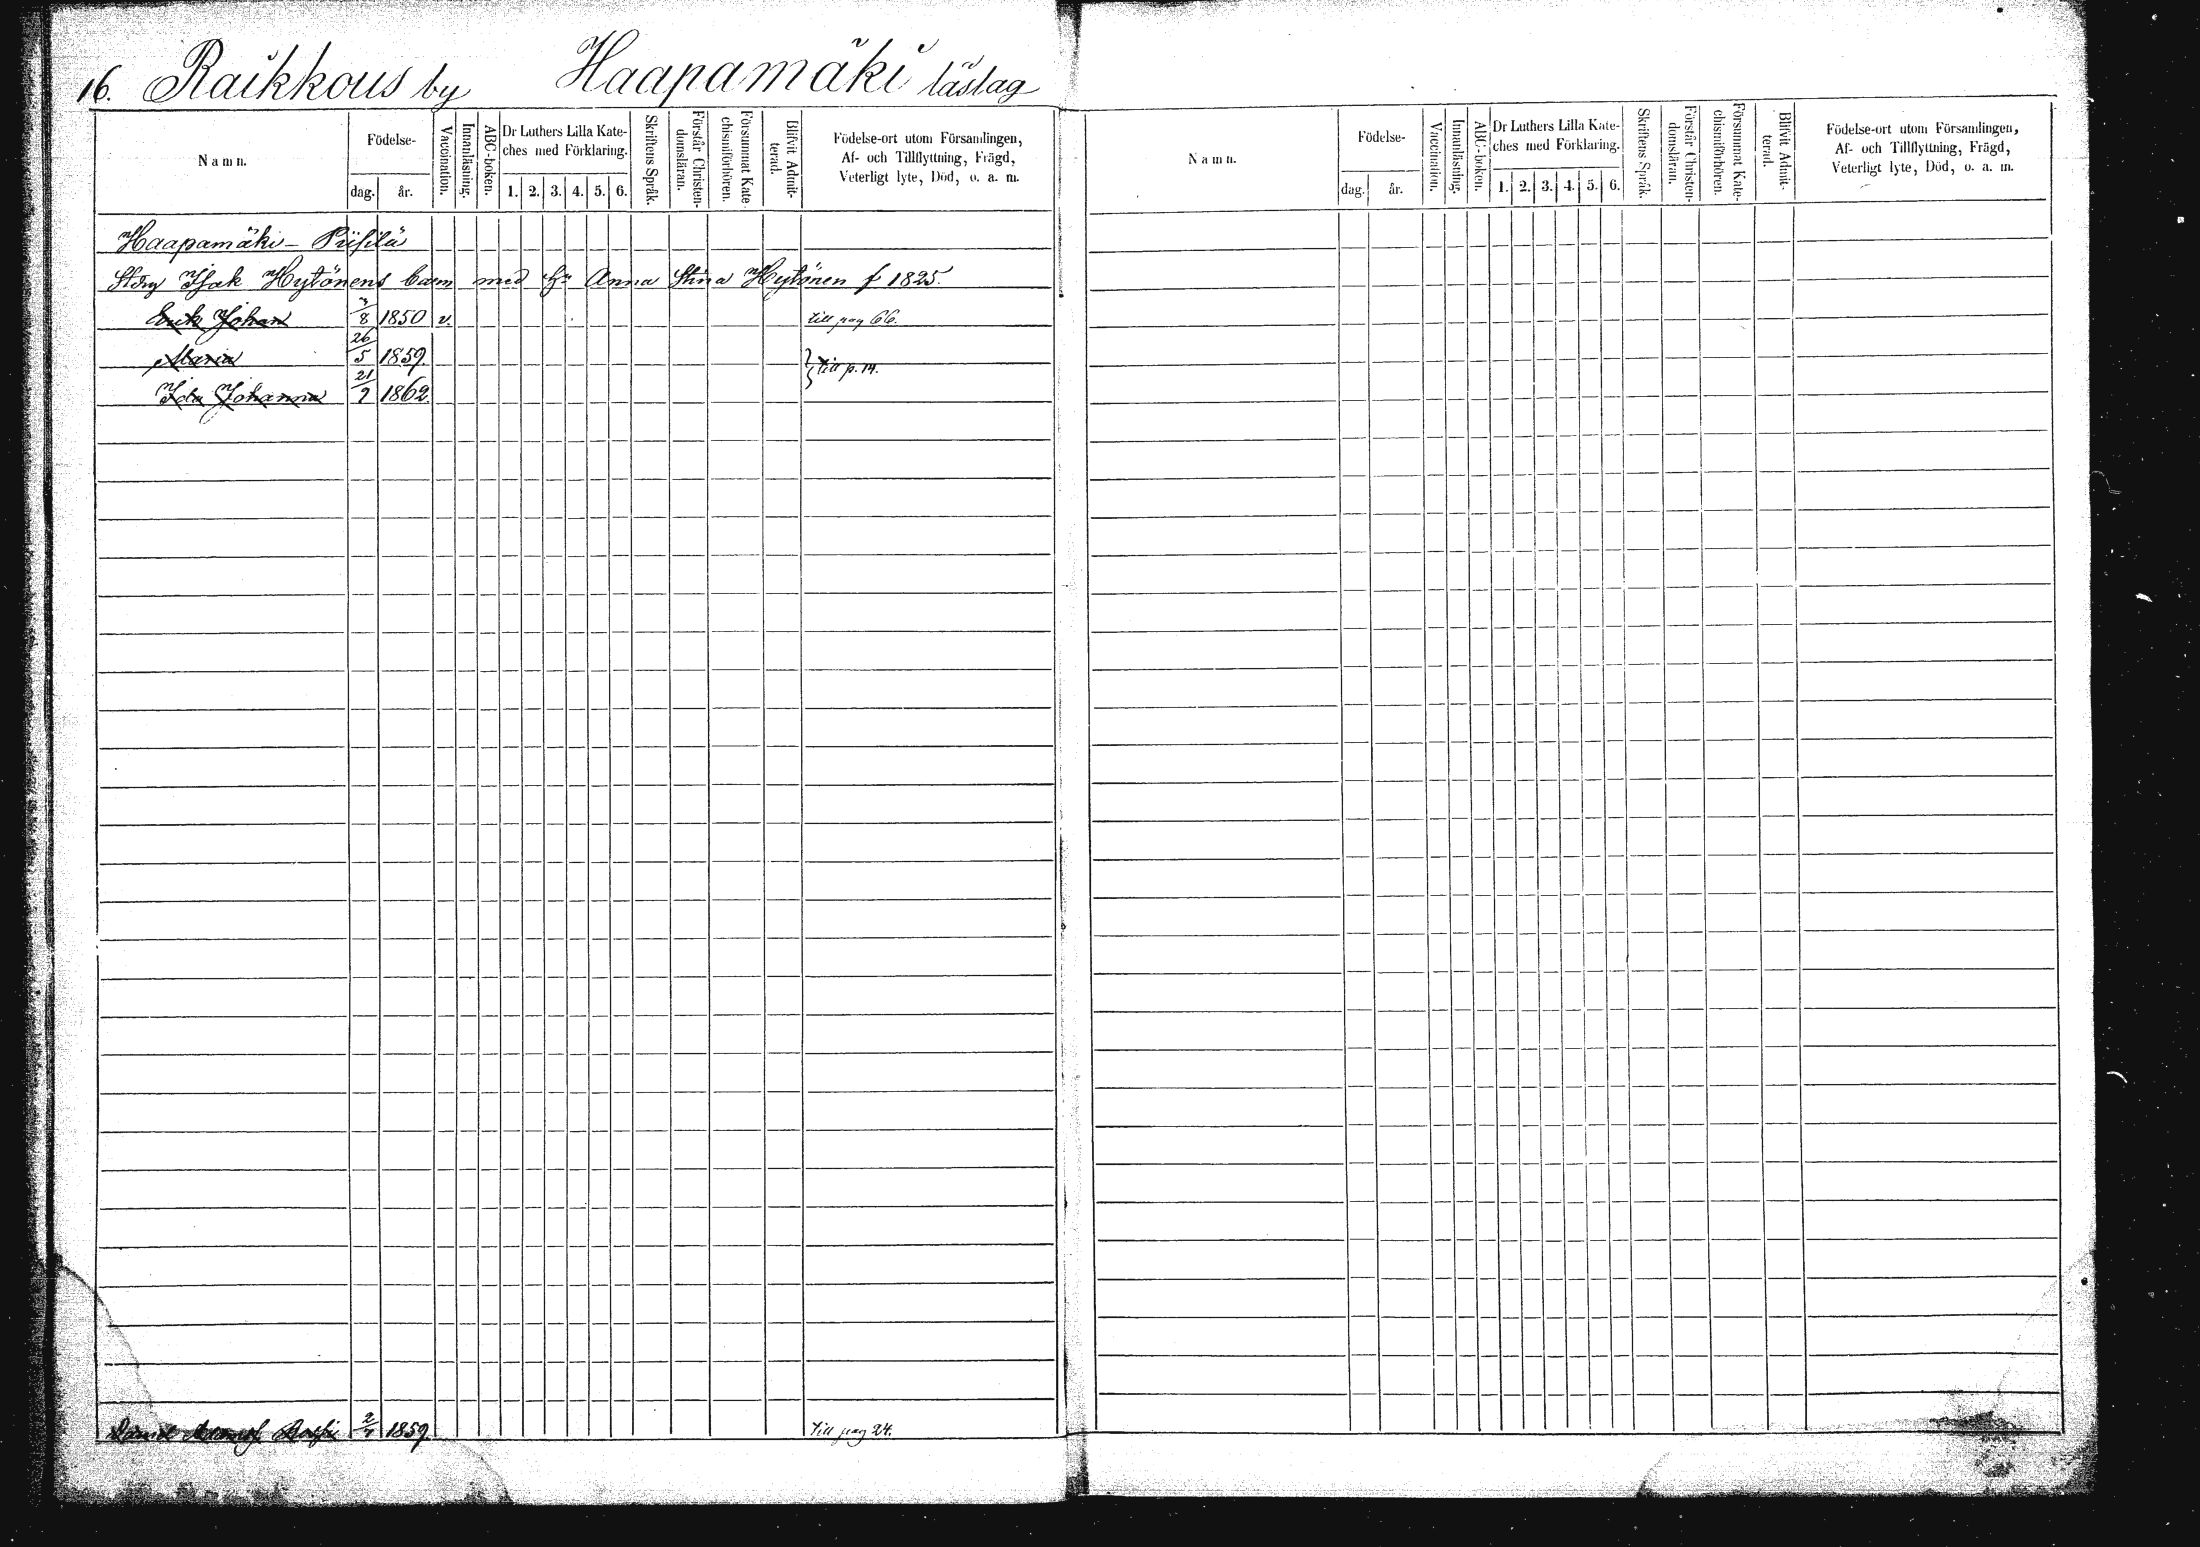 16. Raikkous by Haapamäki läslag
Namn.
Födelse-
dag.
år.
Vaccination.
Innanläsning.
ABC-boken.
Dr Luthers Lilla Kate-
ches med Förklaring.
1. 2. 3. 4. 5. 6.
Skriftens Språk.
Förstår Christen-
domsläran.
Försummat Kate-
chismiförhören.
Blifvit Admit-
terad.
Födelse-ort utom Församlingen,
Af- och Tillflyttning, Frägd,
Veterligt lyte, Död, o. a. m.
Haapamäki - Piisilä
Isak Hytönens barn med Hu Anna Stina Hytönen f 1825.
Erik Johan 8 1850 v. till pag 66.
Maria 26/5 1859.
till p. 14.
Ida Johanna 21/9 1862.
1859. till pag 24.
Namn.
Födelse-
dag.
år.
Vaccination.
Innanläsning.
ABC-boken.
Dr Luthers Lilla Kate-
ches med Förklaring.
1. 2. 3. 4. 5. 6.
Skriftens Språk.
Förstår Christen-
domsläran.
Försummat Kate-
chismiförhören.
Blifvit Admit-
terad.
Födelse-ort utom Församlingen,
Af- och Tillflyttning, Frägd,
Veterligt lyte, Död, o. a. m.